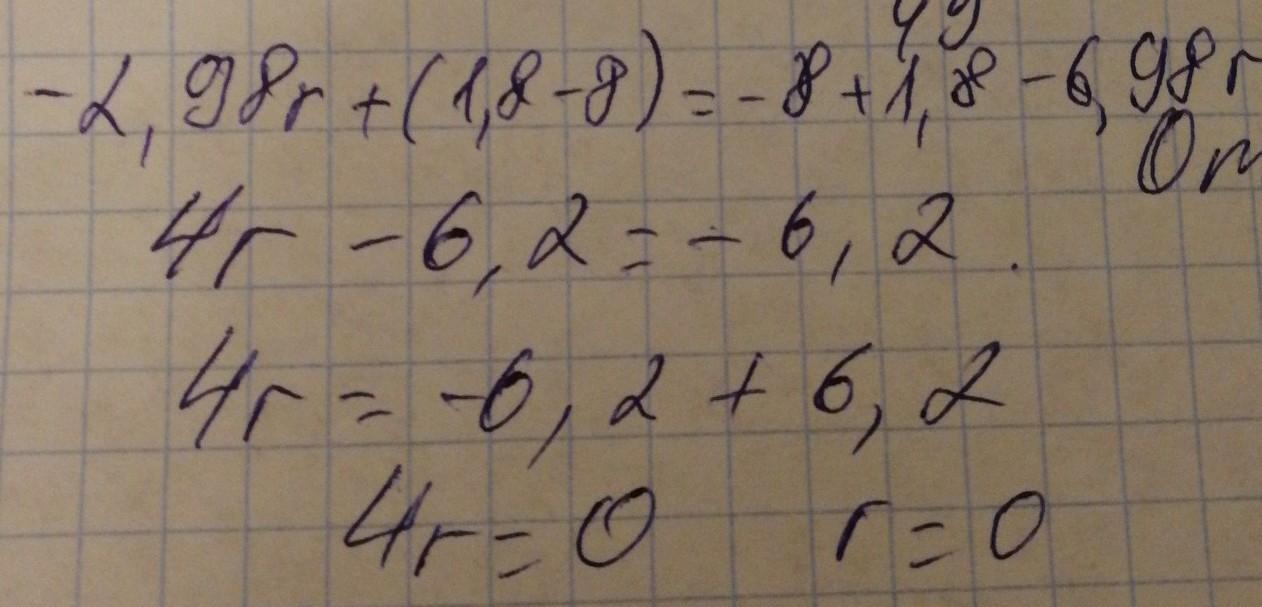 -2,98r+(1,8-8)=-8+1,8-6,98r
4r-6,2=-6,2.
4r=-6,2+6,2
4r=0 r=0